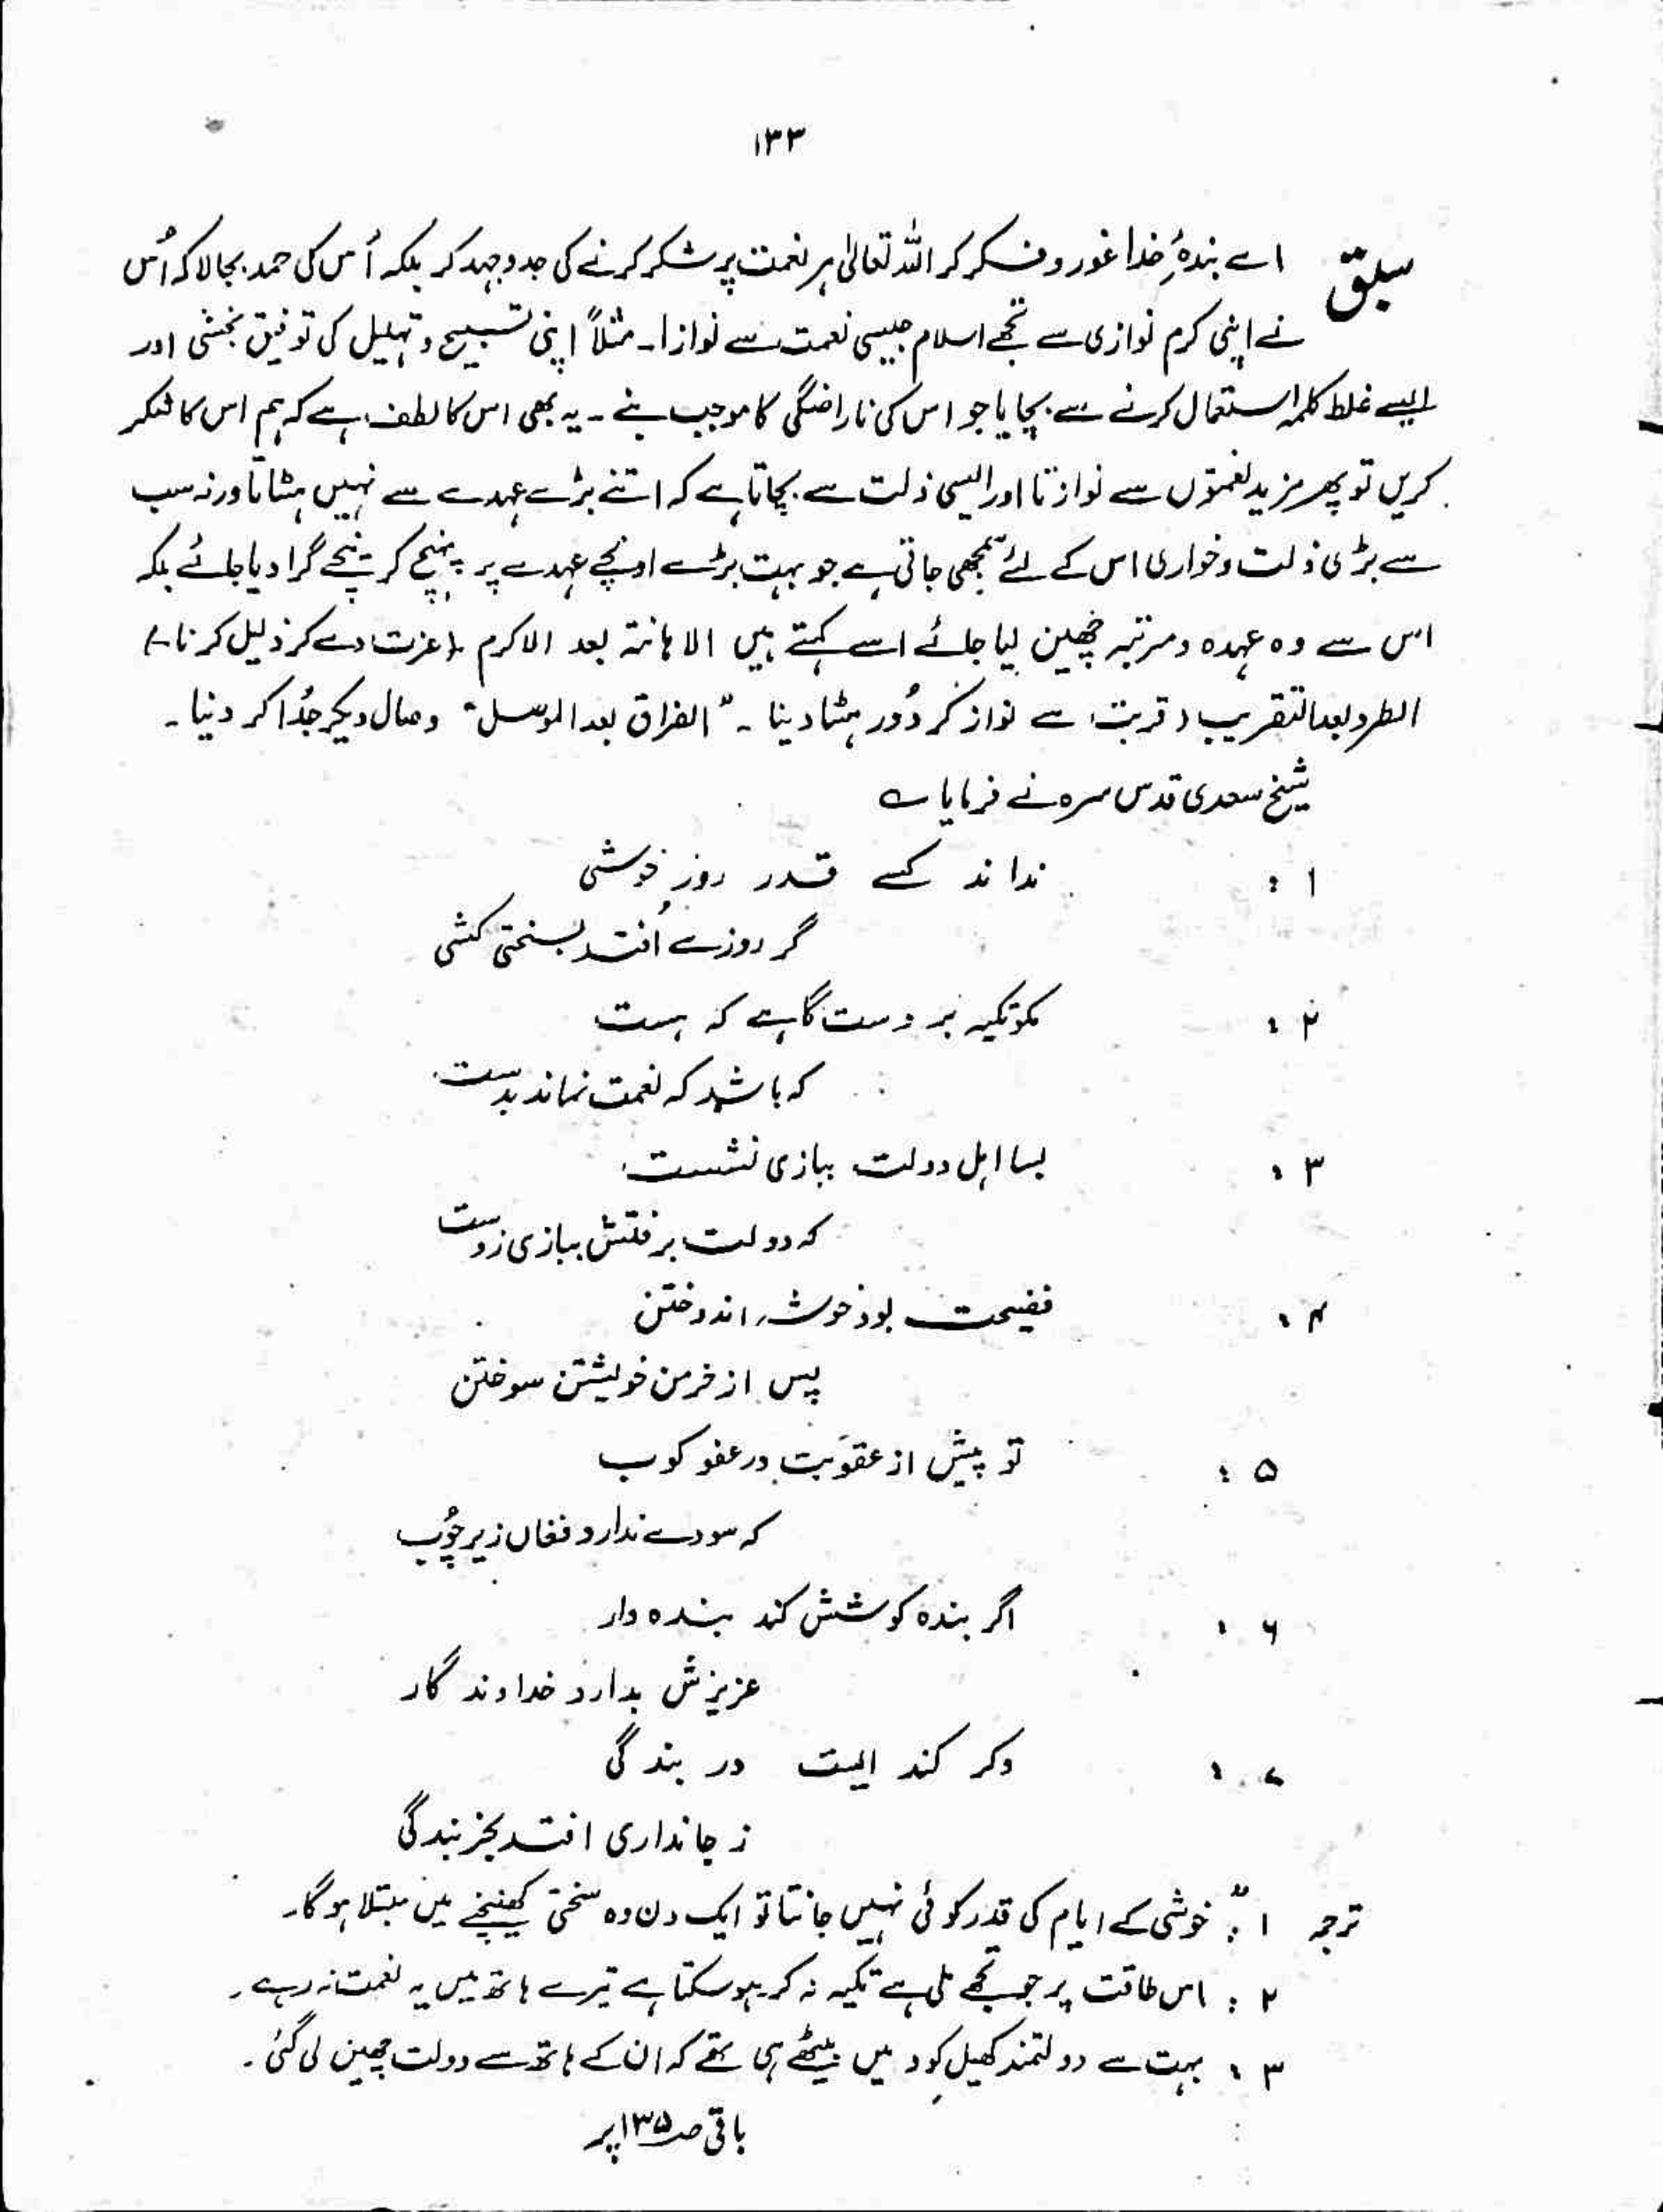 ۱۳۳
سبق اے بندۂ خدا غور و فکر کر اللہ تعالیٰ ہر نعمت پر شکر کرنے کی جدوجہد کر بلکہ اُس کی حمد بجالا کہ اُس
نے اپنی کرم نوازی سے تجھے اسلام جیسی نعمت سے نوازا۔ مثلاً اپنی تسبیح و تہلیل کی توفیق بخشی اور
ایسے غلط کلمہ استعمال کرنے سے بچایا جو اس کی ناراضگی کا موجب بنے۔ یہ بھی اس کا لطف ہے کہ ہم اس کا شکر
کریں تو پھر مزید نعمتوں سے نوازتا اور ایسی ذلت سے بچاتا ہے کہ اتنے بڑے عہدے سے نہیں ہٹاتا ورنہ سب
سے بڑی ذلت و خواری اس کے لئے سمجھی جاتی ہے جو بہت بڑے اونچے عہدے پر پہنچ کر نیچے گرا دیا جائے بلکہ
اس سے وہ عہدہ و مرتبہ چھین لیا جائے اسے کہتے ہیں الاہانتہ بعد الاکرم (عزت دے کر ذلیل کرنا)
الطرد بعد التقریب (قربت سے نواز کر دُور ہٹا دینا ۔ "الفراق بعد الوصل" وصال دیکر جُدا کر دینا ۔
شیخ سعدی قدس سرہ نے فرمایا ے
۱ : نداند کسے قدر روز خوشی
گر روزے اُفتد بسختی کشی
۲ : مکو تکیہ بر دست گاہے کہ ہست
کہ باشد کہ نعمت نماند بدست
۳ : بسا اہل دولت ببازی نشست
کہ دولت برفتش ببازی زدست
۴ : فضیحت بود خوشہ اندوختن
پس از خرمن خویشتن سوختن
۵ : تو پیش از عقوبت در عفو کوب
کہ سودے ندارد فغاں زیر چُوب
۶ : اگر بندہ کوشش کند بندہ وار
عزیزش بدارد خداوند گار
۷ : وکر کند در بندگی
ز جانداری افتد بخر بندگی
ترجمہ ۱ : "خوشی کے ایام کی قدر کوئی نہیں جانتا تو ایک دن وہ سختی کھینچنے میں مبتلا ہوگا۔
۲ : اس طاقت پر جو تجھے ملی ہے تکیہ نہ کر ہو سکتا ہے تیرے ہاتھ میں یہ نعمت نہ رہے۔
۳ : بہت سے دولتمند کھیل کود میں بیٹھے ہی تھے کہ ان کے ہاتھ سے دولت چھین لی گئی۔
باقی صـ ۱۳۵ پر